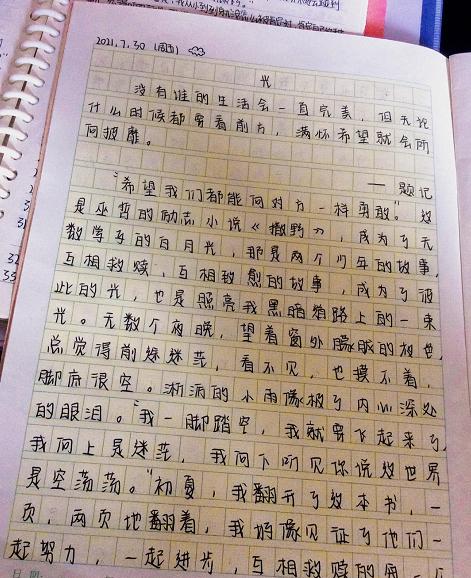 2021.7.30 (周五)
光
没有谁的生活会一直完美，但无论
什么时候都要看前方，满怀希望就会所
向披靡。
——题记
“希望我们都能像对方一样勇敢。”这
是巫哲的励志小说《撒野》，成为了无
数学子的白月光，那是两个少年的故事，
互相救赎，互相救愈的故事，成为了彼
此的光，也是照亮我黑暗道路上的一束
光。无数个夜晚，望着窗外朦胧的夜色，
总觉得前途迷茫，看不见，也摸不着，
脚底很空。淅沥的小雨像极了内心深处
的眼泪。“我一脚踏空，我就要飞起来了，
我向上是迷茫，我向下听见你说这世界
是空荡荡。”初夏，我翻开了这本书，一
页，两页地翻着，我好像见证了他们一
起努力，一起进步，互相救赎的每一